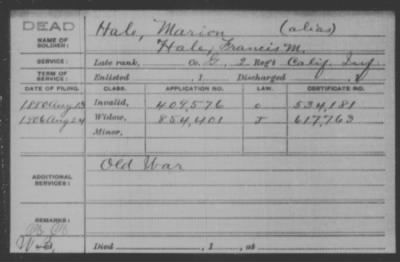 DEAD
NAME OF SOLDIER: Hale, Marion (alias)
Hale, Francis M.
SERVICE: Late rank, Co. G, 2 Reg't Calif. Inf.
TERM OF SERVICE: Enlisted , 1 Discharged , 1
DATE OF FILING. CLASS. APPLICATION NO. LAW. CERTIFICATE NO.
1880 Aug Invalid, 409,576 534,181
1906 Aug 24 Widow, 854,401 617,763
Minor,
ADDITIONAL SERVICES: Old War
REMARKS:
Died , 1 , at